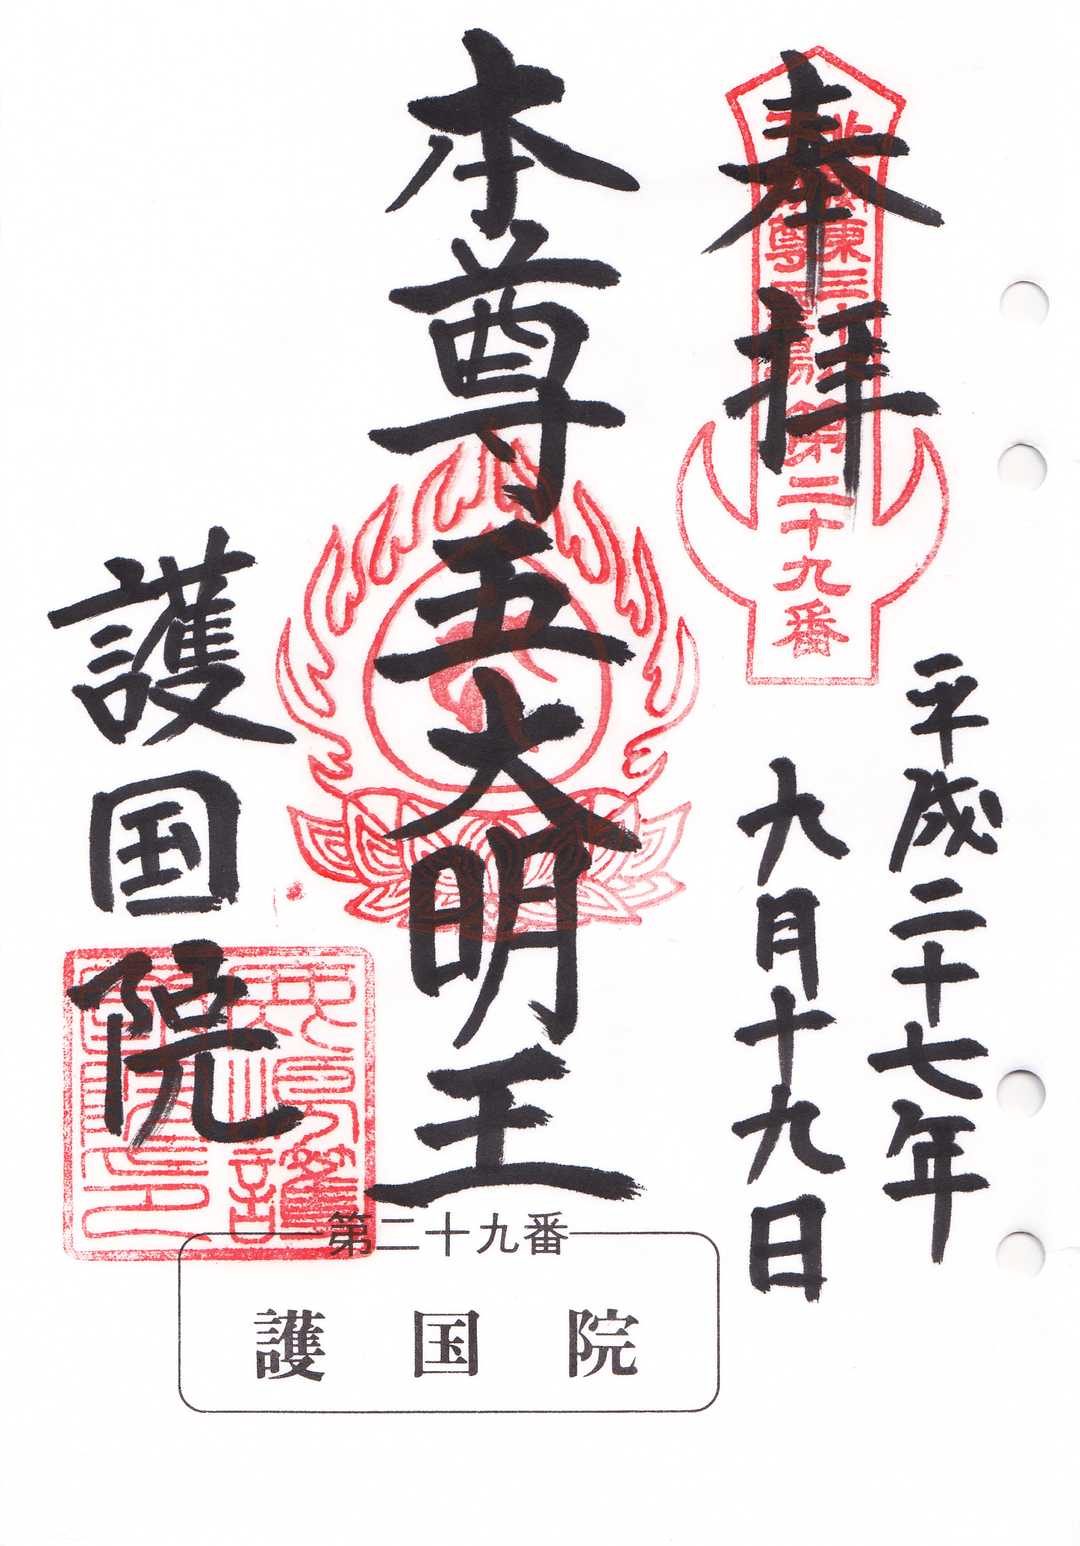 奉拝
第二十九番
平成二十七年
九月十九日
本尊五大明王
護国院
第二十九番
護国院